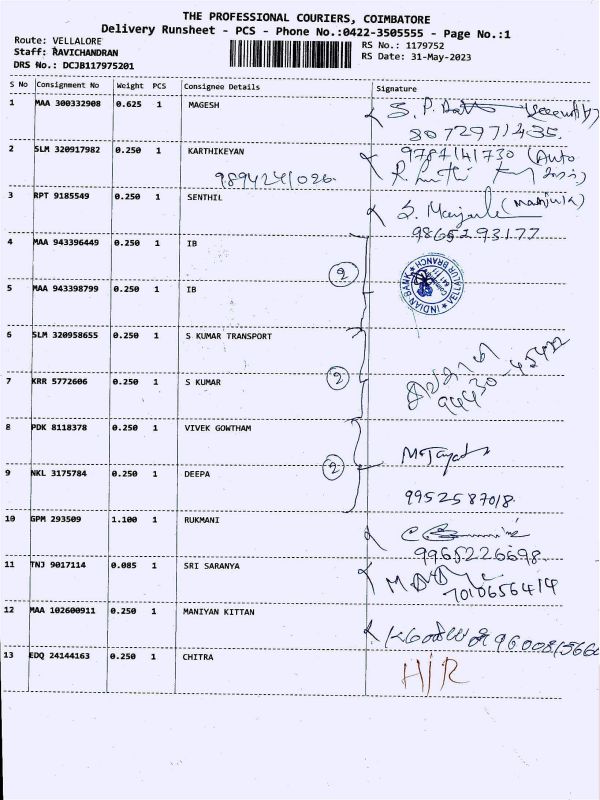 THE PROFESSIONAL COURIERS, COIMBATORE
Delivery Runsheet - PCS - Phone No.:0422-3505555 - Page No.:1
Route: VELLALORE
RS No.: 1179752
Staff: RAVICHANDRAN
RS Date: 31-May-2023
DRS No.: DCJB117975201
S No Consignment No Weight PCS Consignee Details Signature
1 MAA 300332908 0.625 1 MAGESH
8072971435
2 SLM 320917982 0.250 1 KARTHIKEYAN 9787141730 (Auto
9894241026
3 RPT 9185549 0.250 1 SENTHIL S. Manjula (manjula)
9865293177
4 MAA 943396449 0.250 1 IB
2
INDIAN BANK ★ VELLALUR BRANCH ★
5 MAA 943398799 0.250 1 IB
6 SLM 320958655 0.250 1 S KUMAR TRANSPORT
2
7 KRR 5772606 0.250 1 S KUMAR
94430-45422
8 PDK 8118378 0.250 1 VIVEK GOWTHAM
2
9 NKL 3175784 0.250 1 DEEPA
9952587018
10 GPM 293509 1.100 1 RUKMANI
9965226698
11 TNJ 9017114 0.085 1 SRI SARANYA
7010656414
12 MAA 102600911 0.250 1 MANIYAN KITTAN
9600815660
13 EDQ 24144163 0.250 1 CHITRA H/R